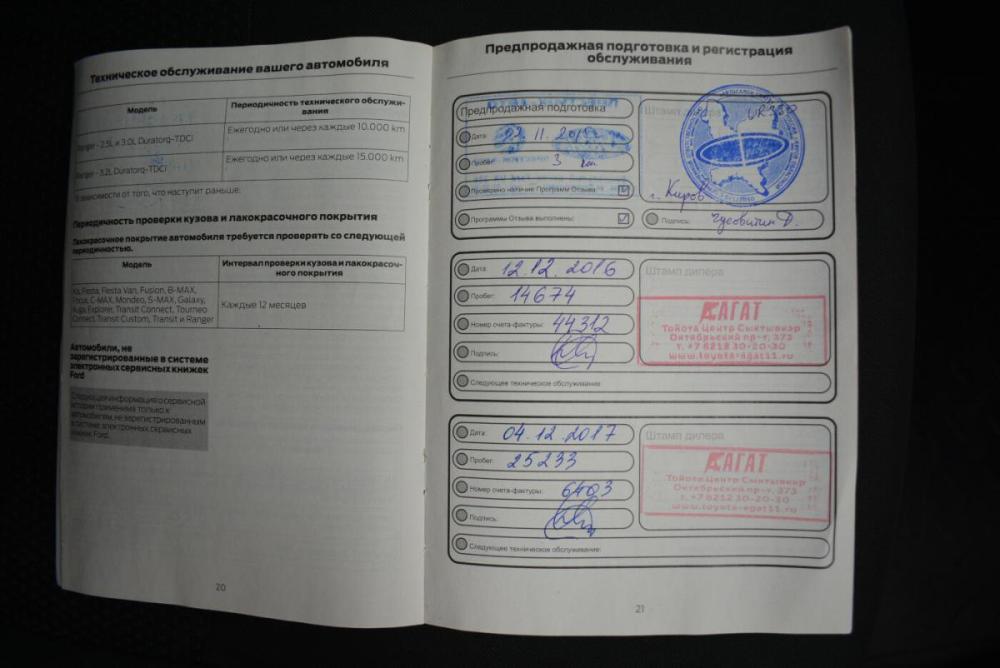 Техническое обслуживание вашего автомобиля
Модель
Периодичность технического обслужи-
вания
Ranger - 2.5L и 3.0L Duratorq-TDCi
Ежегодно или через каждые 10.000 km
Ranger - 3.2L Duratorq-TDCi
Ежегодно или через каждые 15.000 km
В зависимости от того, что наступит раньше.
Периодичность проверки кузова и лакокрасочного покрытия
Лакокрасочное покрытие автомобиля требуется проверять со следующей
периодичностью.
Модель
Интервал проверки кузова и лакокрасоч-
ного покрытия
Ka, Fiesta, Fiesta Van, Fusion, B-MAX,
Focus, C-MAX, Mondeo, S-MAX, Galaxy,
Kuga, Explorer, Transit Connect, Tourneo
Connect, Transit Custom, Transit и Ranger
Каждые 12 месяцев
Автомобили, не
зарегистрированные в системе
электронных сервисных книжек
Ford
Следующая информация о сервисной
истории применима только к
автомобилям, не зарегистрированным
в системе электронных сервисных
книжек Ford.
20
Предпродажная подготовка и регистрация
обслуживания
Предпродажная подготовка
Дата:
11.
Пробег:
3 km
Проверено наличие Программ Отзыва:
Программы Отзыва выполнены:
Штамп дилера
г. Киров
Подпись:
Дата: 12.12.2016
Пробег: 14674
Номер счета-фактуры: 44312
Подпись:
Следующее техническое обслуживание:
Штамп дилера
АГАТ
Тойота Центр Сыктывкар
Октябрьский пр-т, 373
т. +7 8212 30-20-30
www.toyota-agat11.ru
Дата: 04.12.2017
Пробег: 25233
Номер счета-фактуры: 6403
Подпись:
Следующее техническое обслуживание:
Штамп дилера
АГАТ
Тойота Центр Сыктывкар
Октябрьский пр-т, 373
т. +7 8212 30-20-30
www.toyota-agat11.ru
21